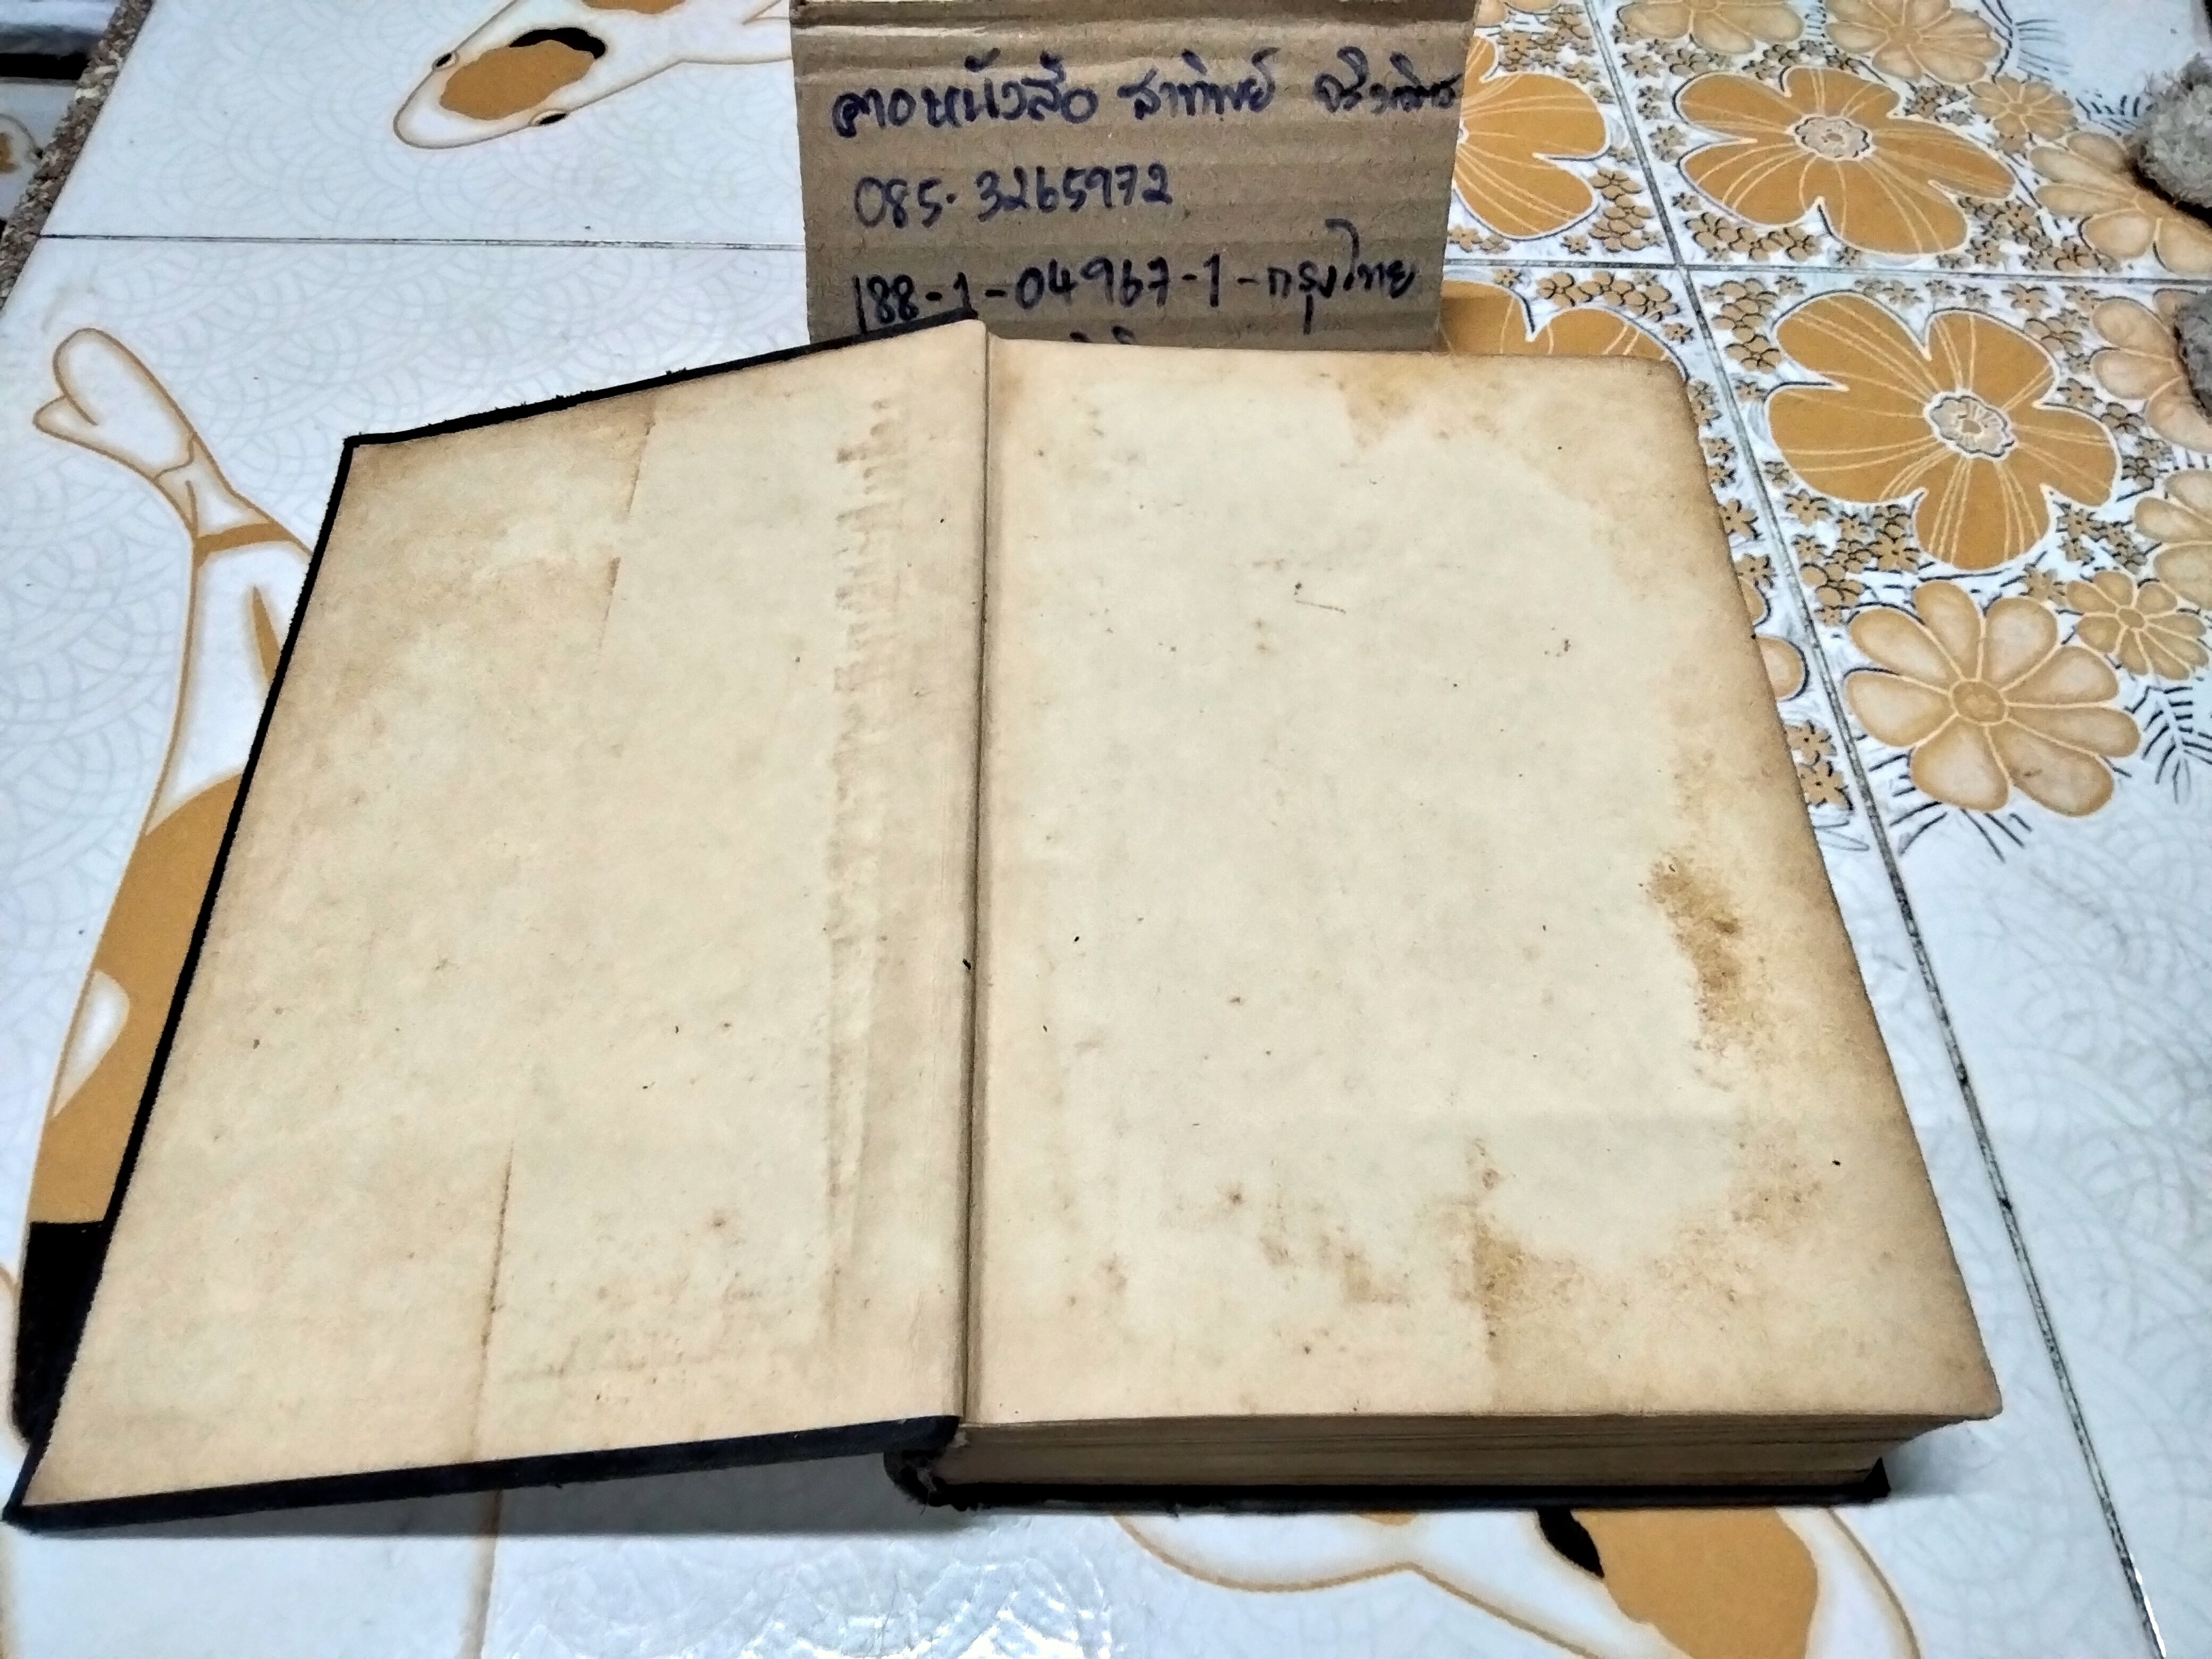 ตาอหนังสือ สาทิพย์
085-3265972
188-1-04967-1-กรุงไทย